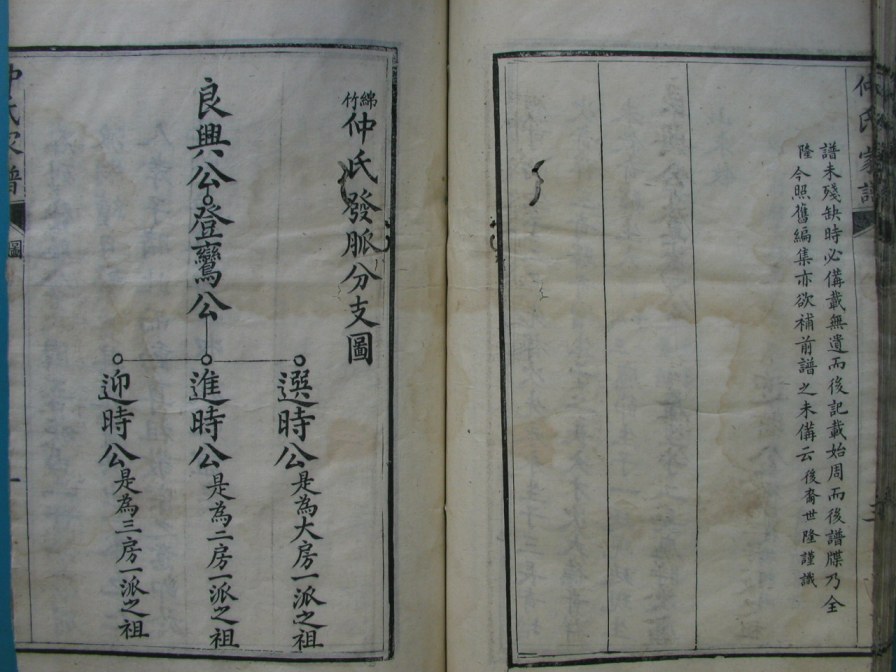 仲氏家譜
譜未殘缺時必備載無遺而後記載始周而後譜牒乃全
隆今照舊編集亦欲補前譜之未備云後裔世隆謹識
綿竹仲氏發脈分支圖
良興公
登鸞公
選時公是為大房一派之祖
進時公是為二房一派之祖
迎時公是為三房一派之祖
仲氏家譜
圖
一